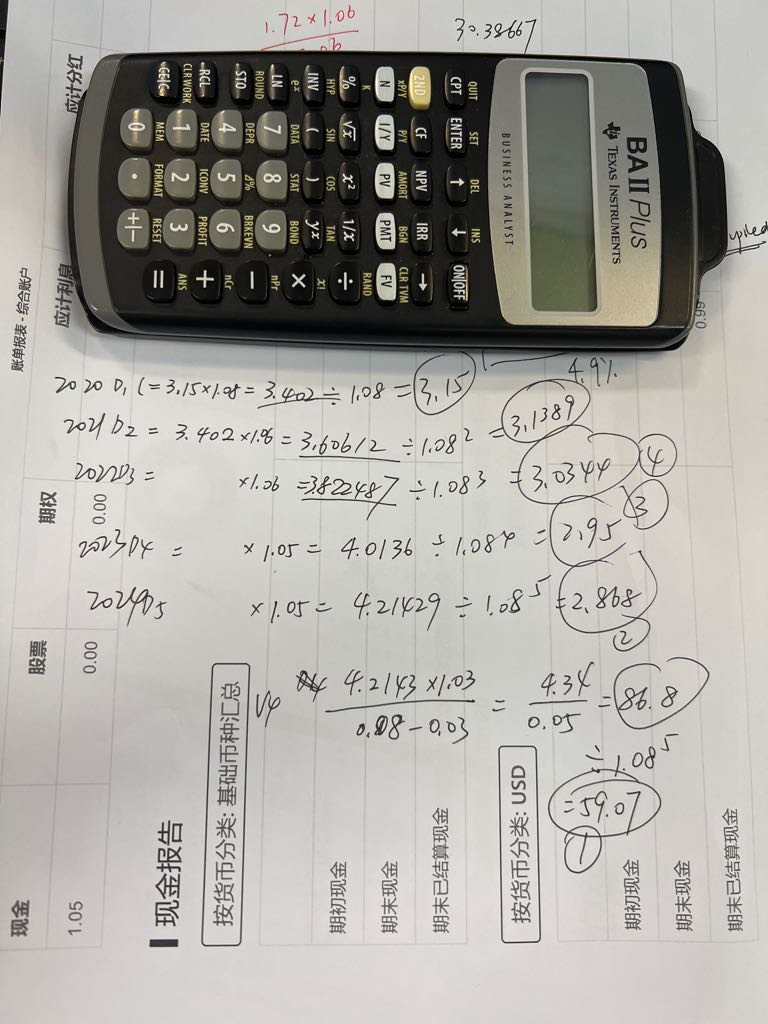 1.72 × 1.06
30.38667
BA II Plus
TEXAS INSTRUMENTS
BUSINESS ANALYST
QUIT SET DEL INS
CPT ENTER ↑ ↓ ON/OFF
2ND CF NPV IRR →
xP/Y P/Y AMORT BGN CLR TVM
N I/Y PV PMT FV
K RAND
% √x x² 1/x ÷
HYP SIN COS TAN x!
INV ( ) yˣ ×
eˣ DATA STAT BOND nPr
LN 7 8 9 −
ROUND DEPR Δ% BRKEVN nCr
STO 4 5 6 +
DATE ICONV PROFIT ANS
RCL 1 2 3 =
CLR WORK MEM FORMAT RESET
CE|C 0 . +|−
应计分红
应计利息
账单报表 - 综合账户
0.99
4.9%
2020 D₁ (= 3.15×1.08 = 3.402 ÷ 1.08 = 3.15
2021 D2 = 3.402 ×1.06 = 3.60612 ÷ 1.08² = 3.1389
2022D3 = ×1.06 = 3.822487 ÷ 1.08³ = 3.0344 ④
③
2023D4 = × 1.05 = 4.0136 ÷ 1.08⁴ = 2.95
2024D5 × 1.05 = 4.21429 ÷ 1.08⁵ = 2.868
②
V4 4.2143 ×1.03 / 0.08 − 0.03 = 4.34 / 0.05 = 86.8
÷ 1.08⁵
= 59.07
①
期权
0.00
股票
0.00
现金
1.05
现金报告
按货币分类: 基础币种汇总
期初现金
期末现金
期末已结算现金
按货币分类: USD
期初现金
期末现金
期末已结算现金